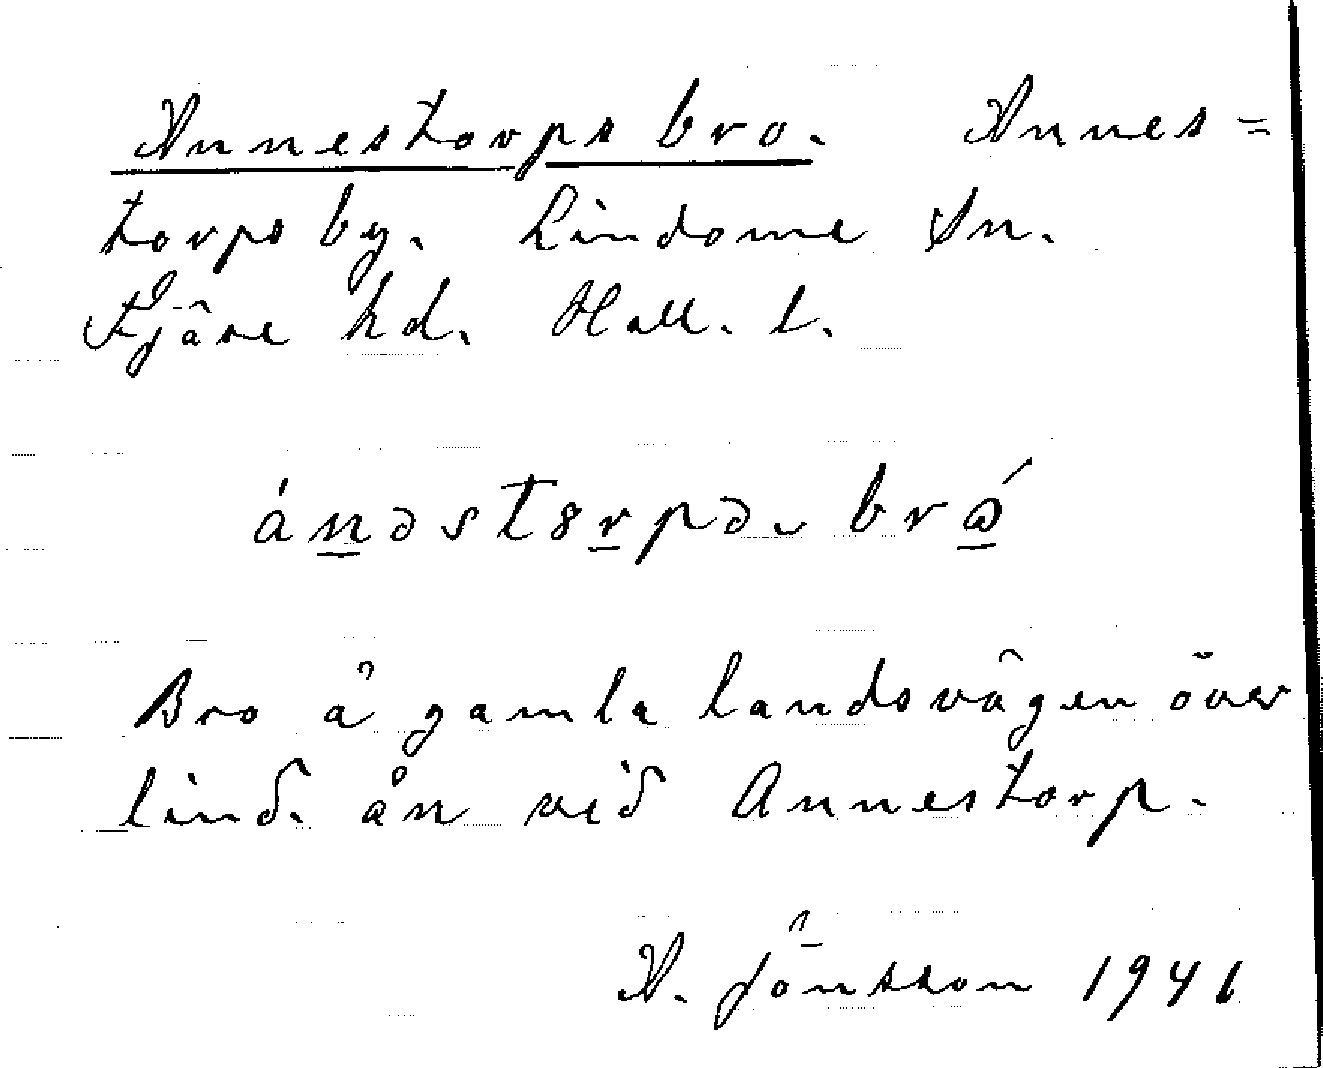 Annestorps bro. Annes=
torps by. Lindome Sn.
Fjäre hd. Hall. l.
bro
Bro å gamla landsvägen över
lind. ån vid Annestorp.
A. Jönsson 1941